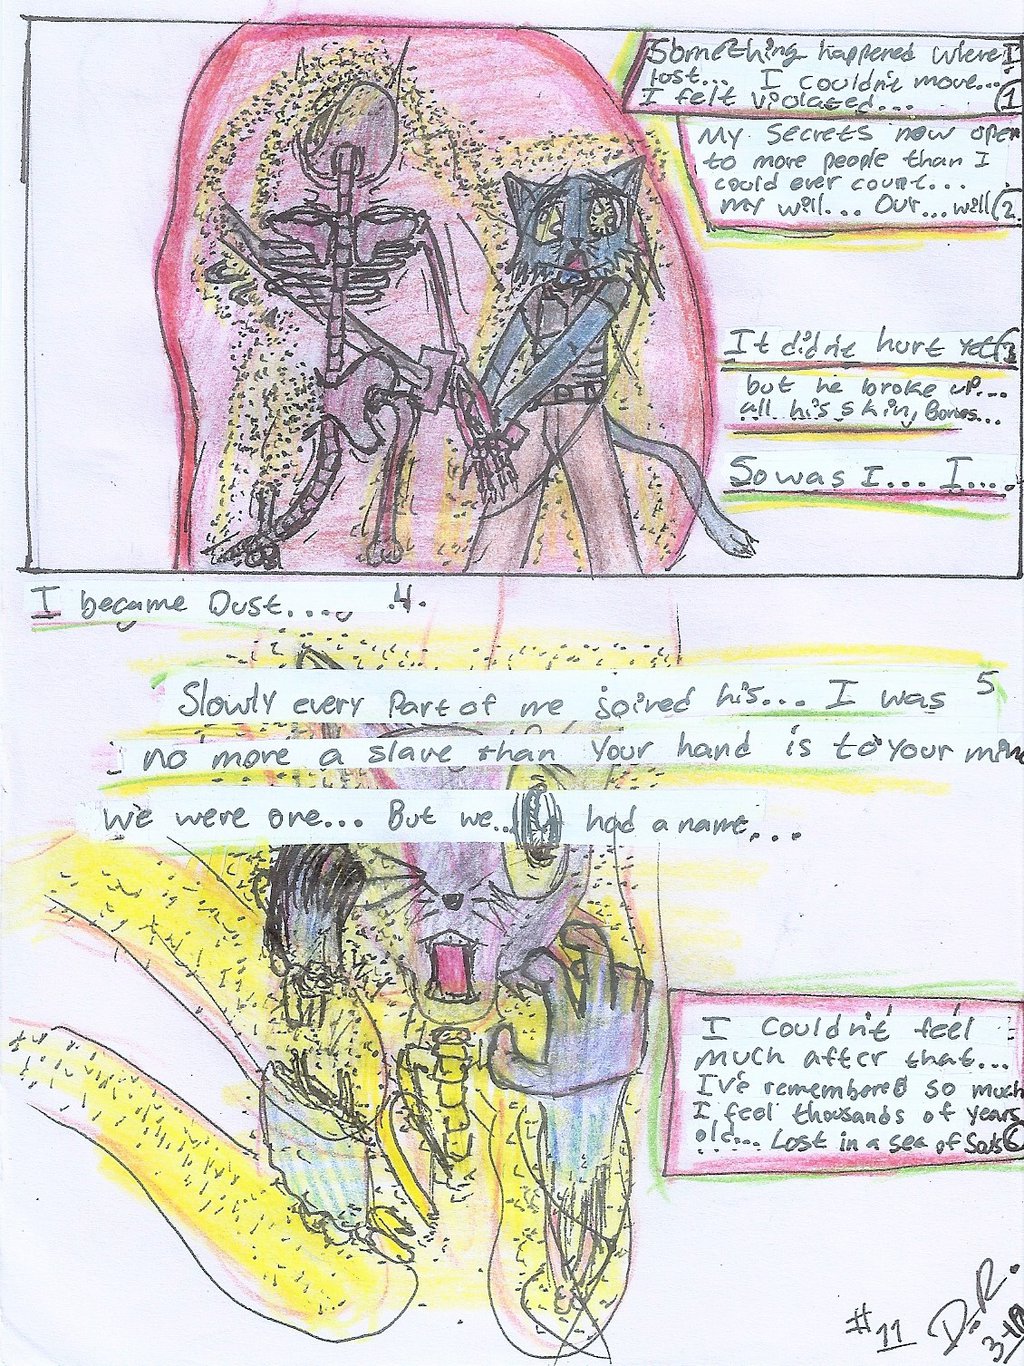 Something happened where I
lost... I couldn't move...
I felt violated... 1
My secrets now open
to more people than I
could ever count...
my will... Our... will 2.
It didn't hurt
but he broke up...
all his skin, Bones...
So was I... I....
I became Dust.... .4.
Slowly every part of me joined his... I was 5
no more a slave than your hand is to your
We were one... But we... had a name,...
I couldn't feel
much after that...
I've remembered so much
I feel thousands of years
old... Lost in a sea of
#11 D-R.